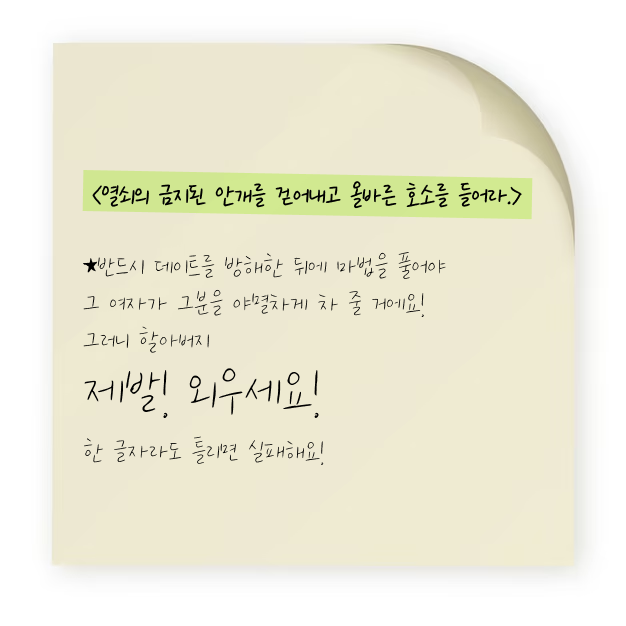 <열쇠의 금지된 안개를 걷어내고 올바른 호소를 들어라.>
★반드시 데이트를 방해한 뒤에 마법을 풀어야
그 여자가 그분을 야멸차게 차 줄 거에요!
그러니 할아버지
제발! 외우세요!
한 글자라도 틀리면 실패해요!